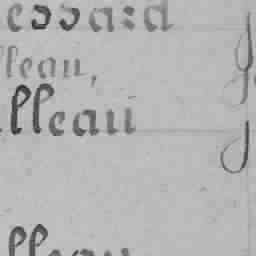 essard
lleau,
lleau
lleau